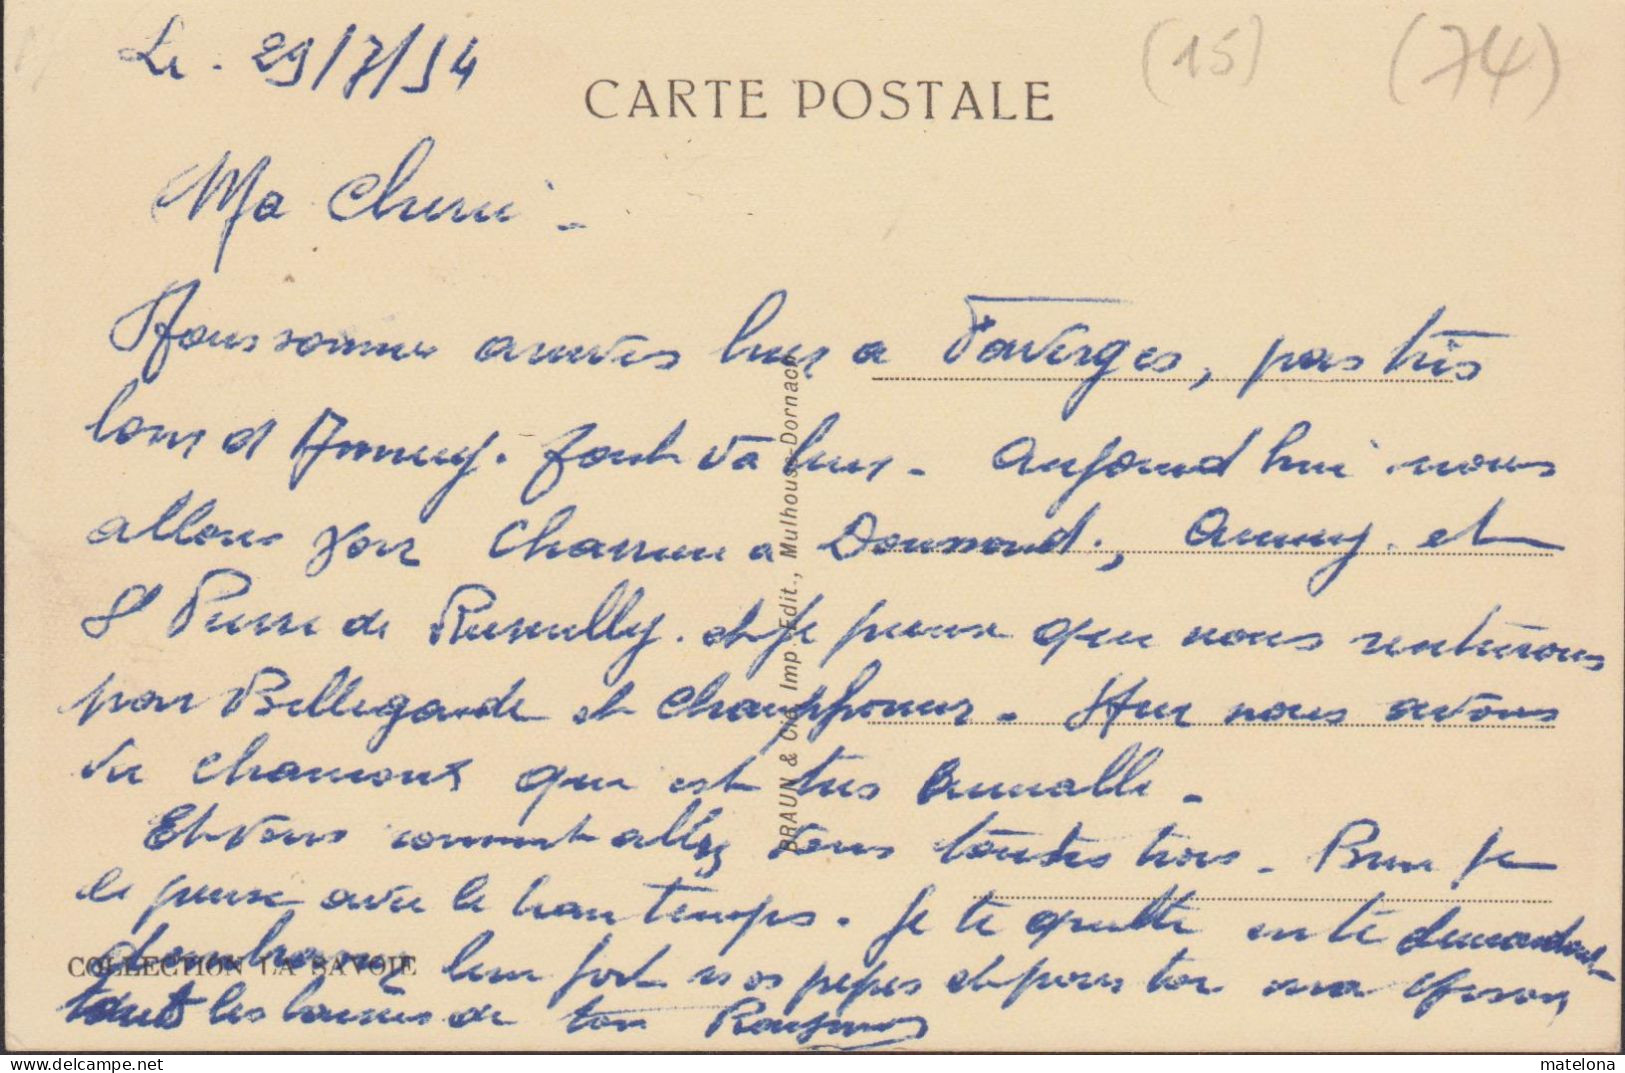 Le. 29/7/54
(15)
(74)
CARTE POSTALE
Ma Cherie -
Nous sommes arrivés hier a Faverges, pas très
loin d Annecy. tout va bien - Aujourd hui nous
allons par a Doussard, Annecy et
St Pierre de Rumilly. et je pense que nous rentrerons
par Bellegarde et - Hier nous avons
vu Chamonix que est très
Et vous comment allez vous toutes trois - Bien je
le pense avec le beau temps. Je te quitte en te demandant
d'embrasser bien fort nos pepes et pour toi ma
tout les baisers de ton Raymond
COLLECTION LA SAVOIE
BRAUN & Cie Imp. Edit., Mulhouse-Dornach
matelona